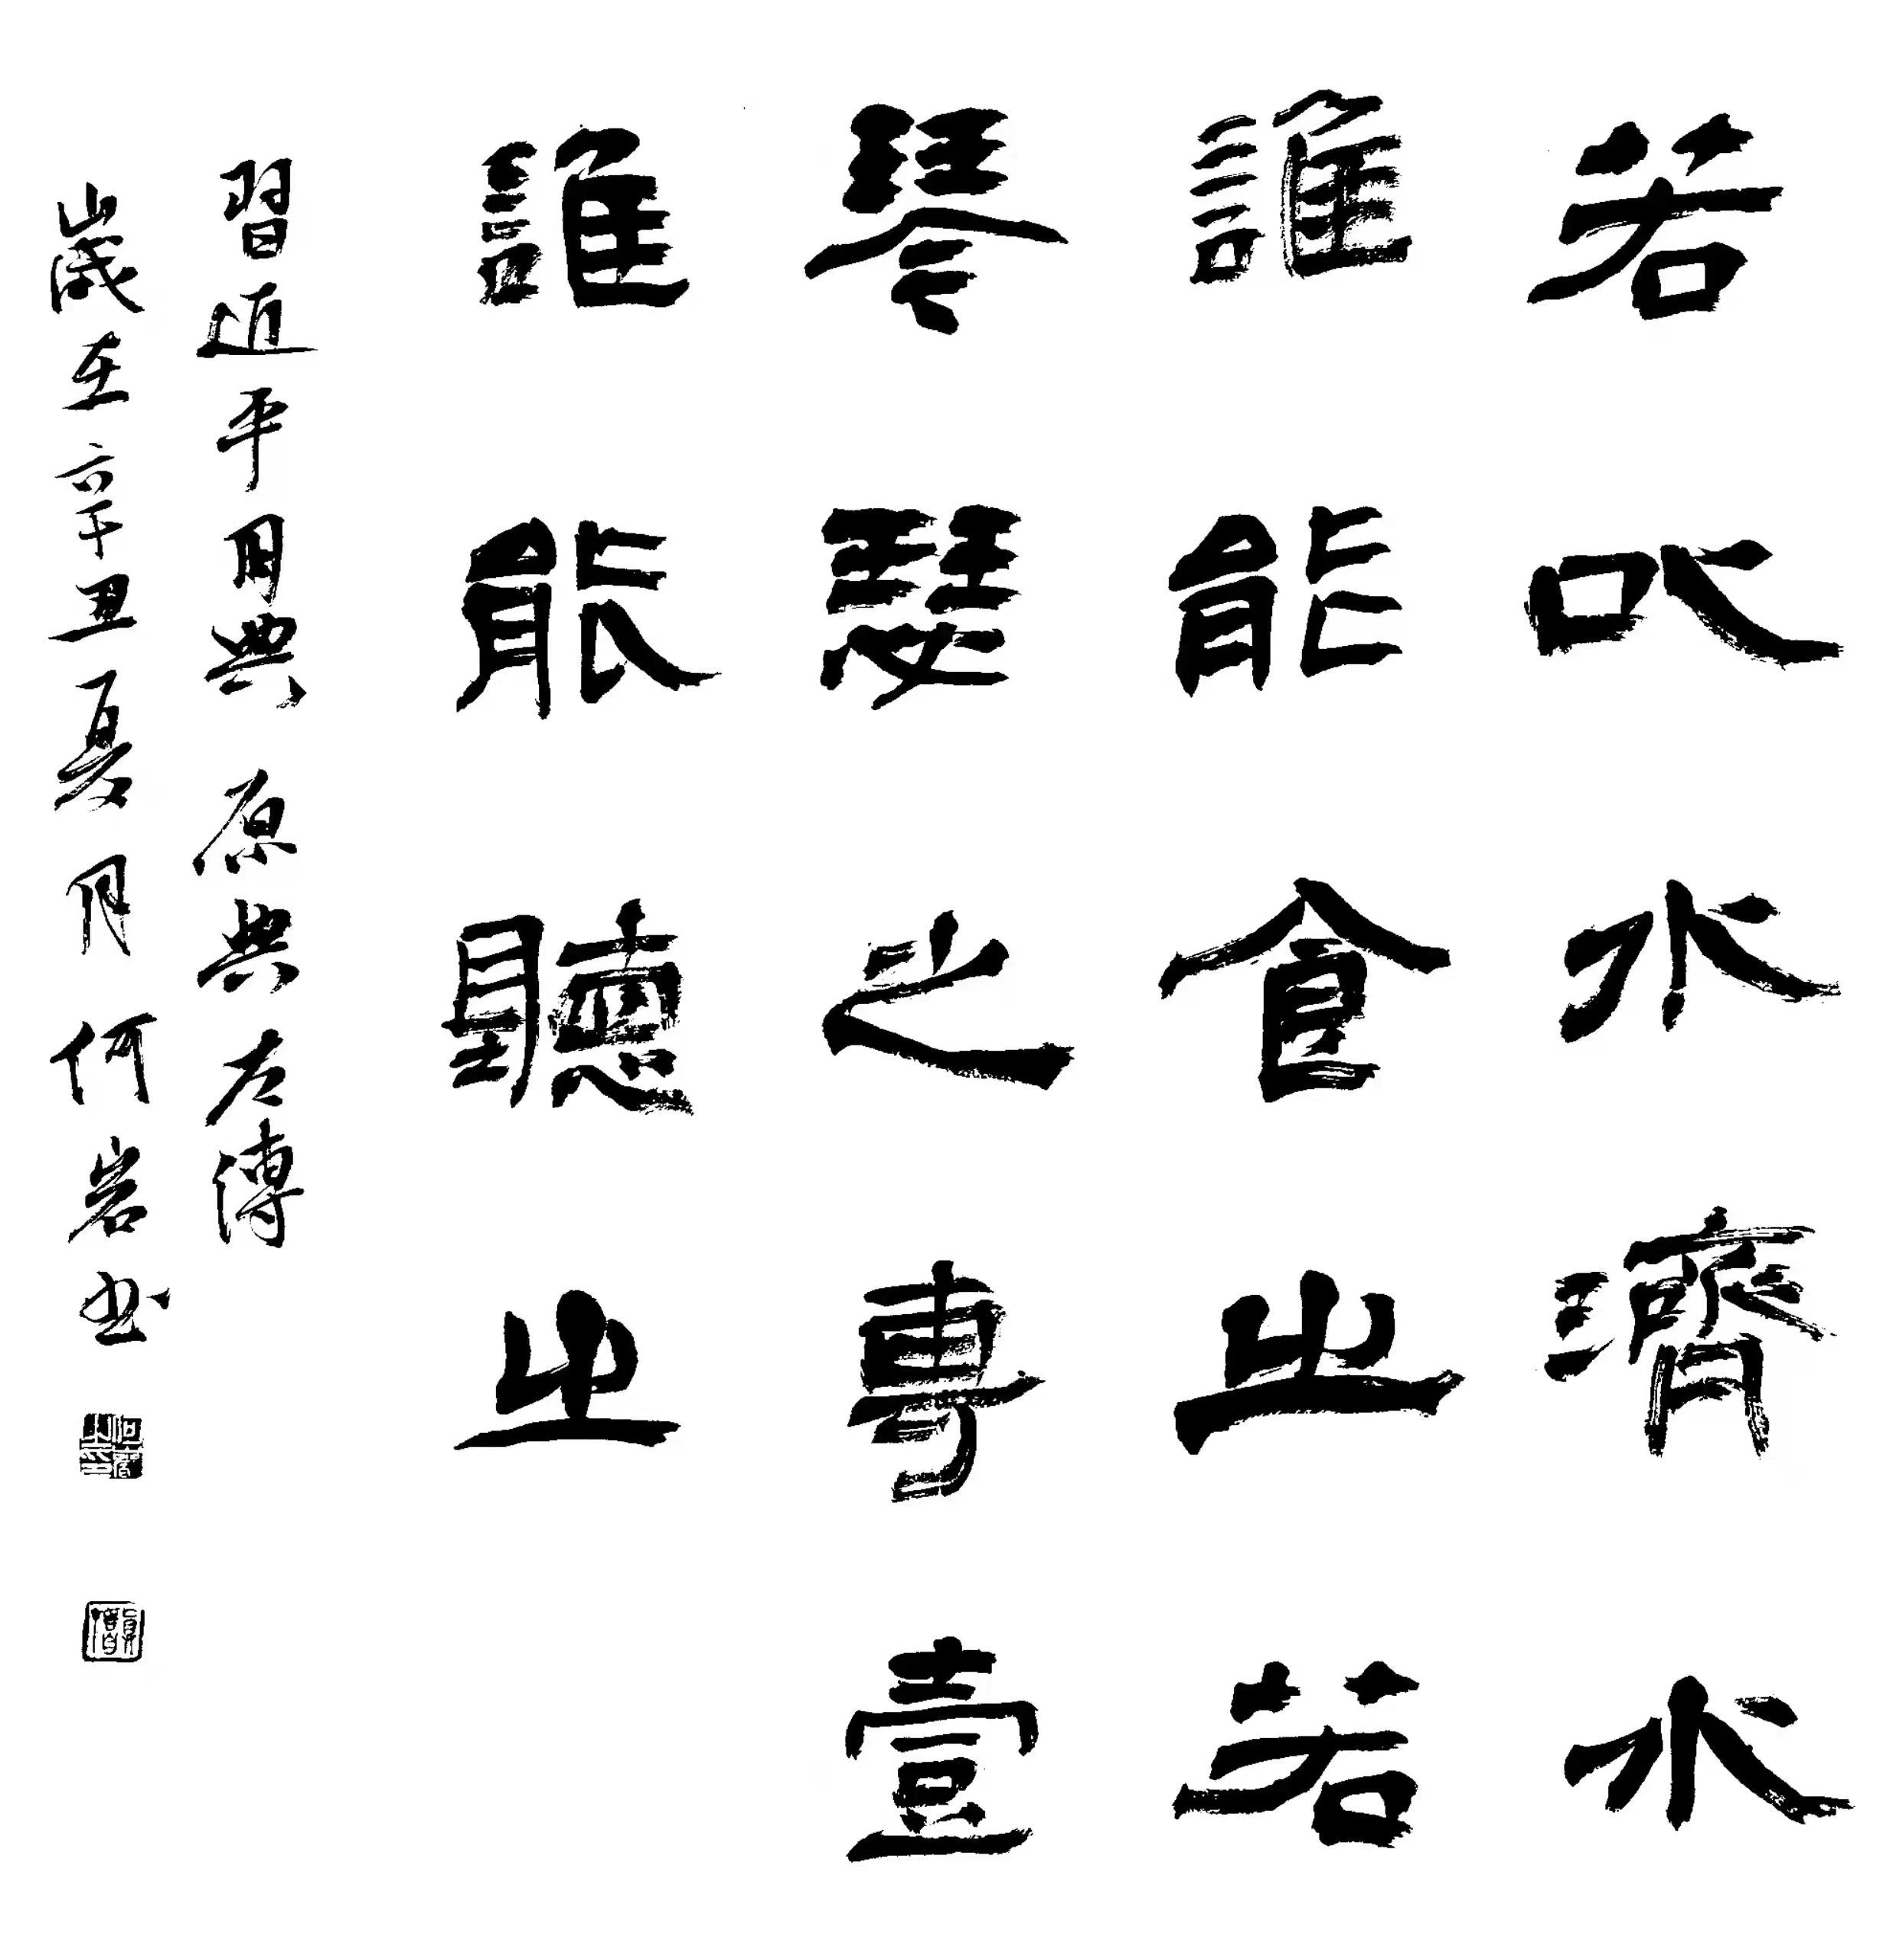 若以水濟水
誰能食之若
琴瑟之專壹
誰能聽之
習近平用典 原典左傳
歲在辛丑夏月何岩书